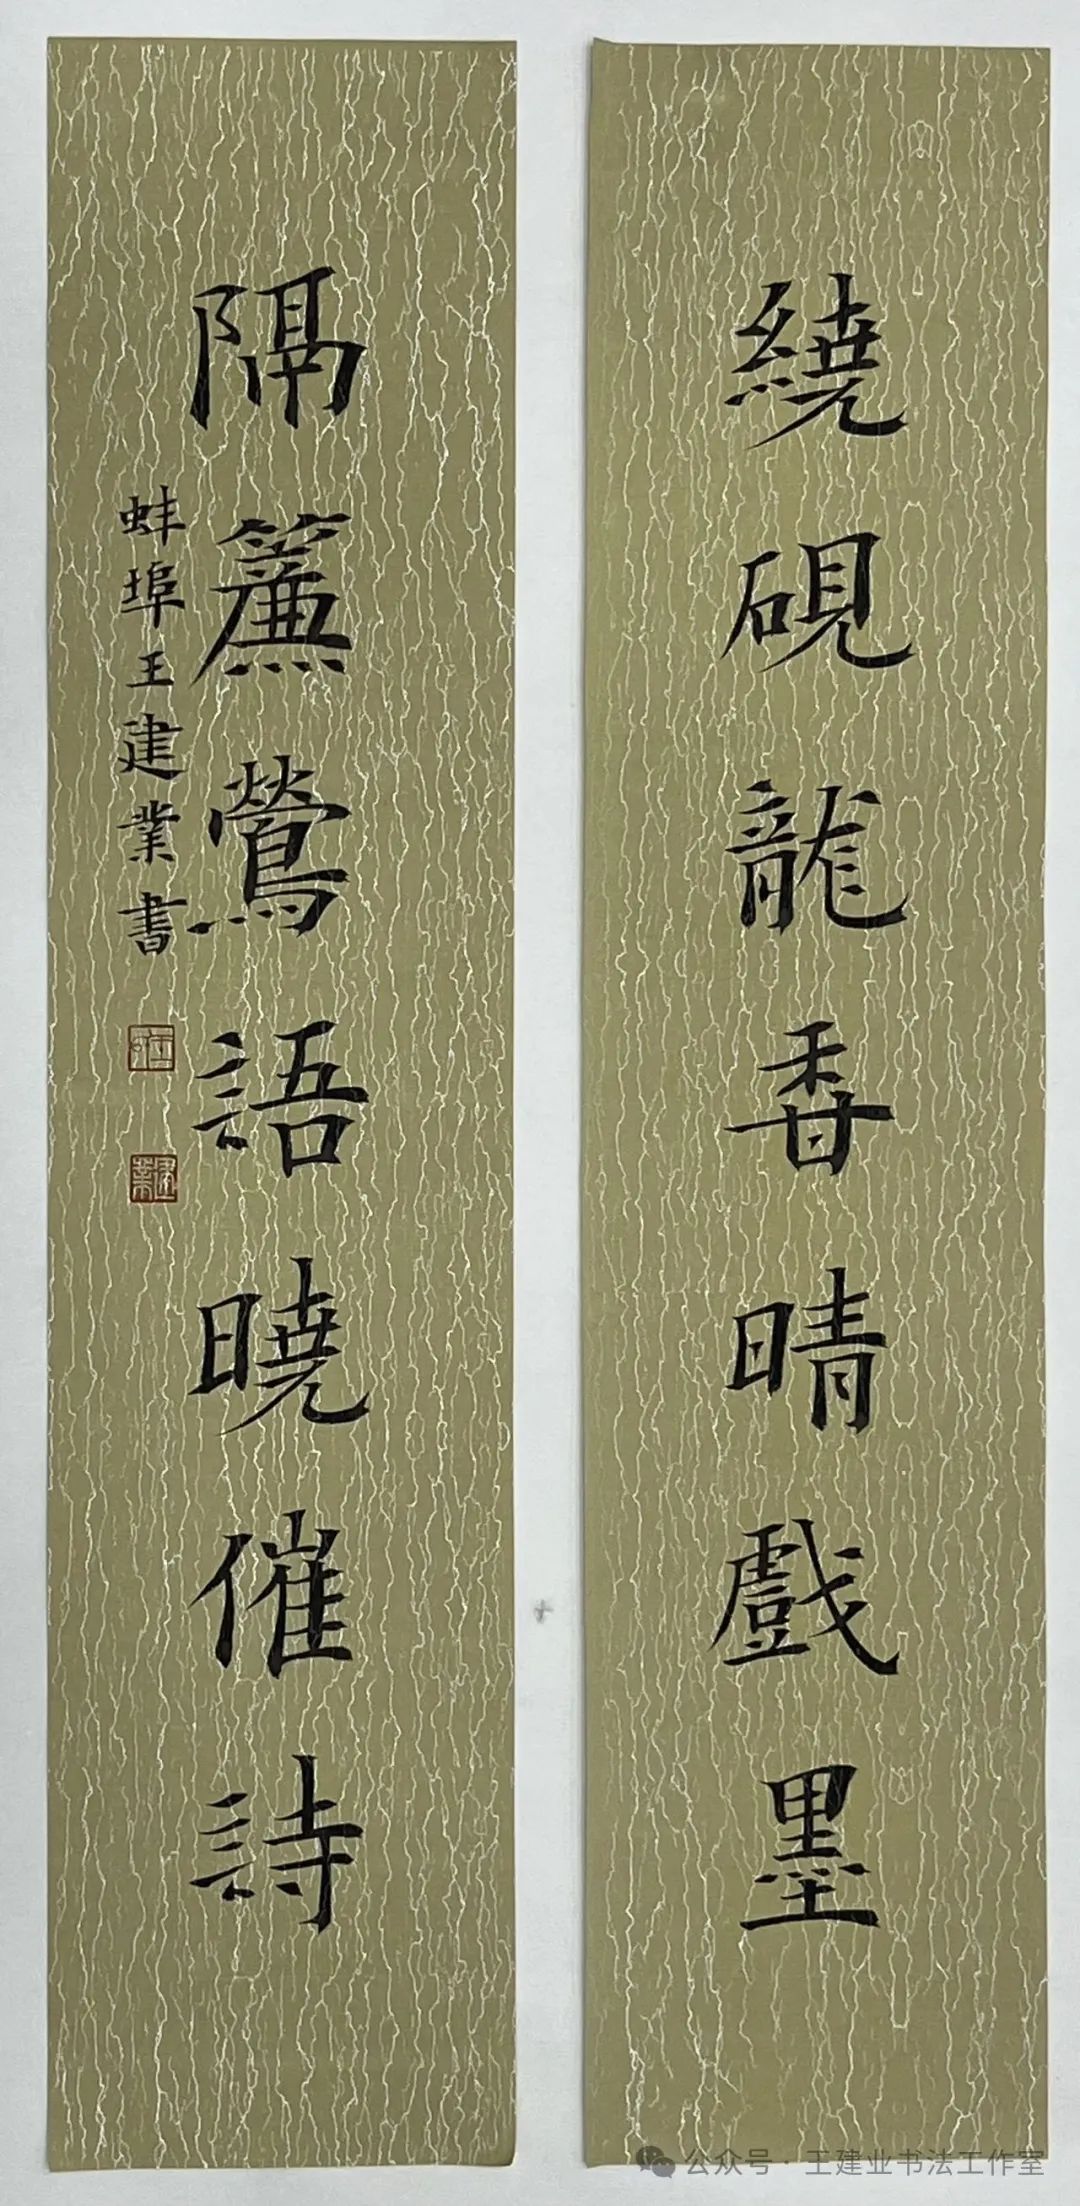 繞硯龍香晴戲墨
隔簾鶯語曉催詩
蚌埠王建業書
建業
公众号 · 王建业书法工作室